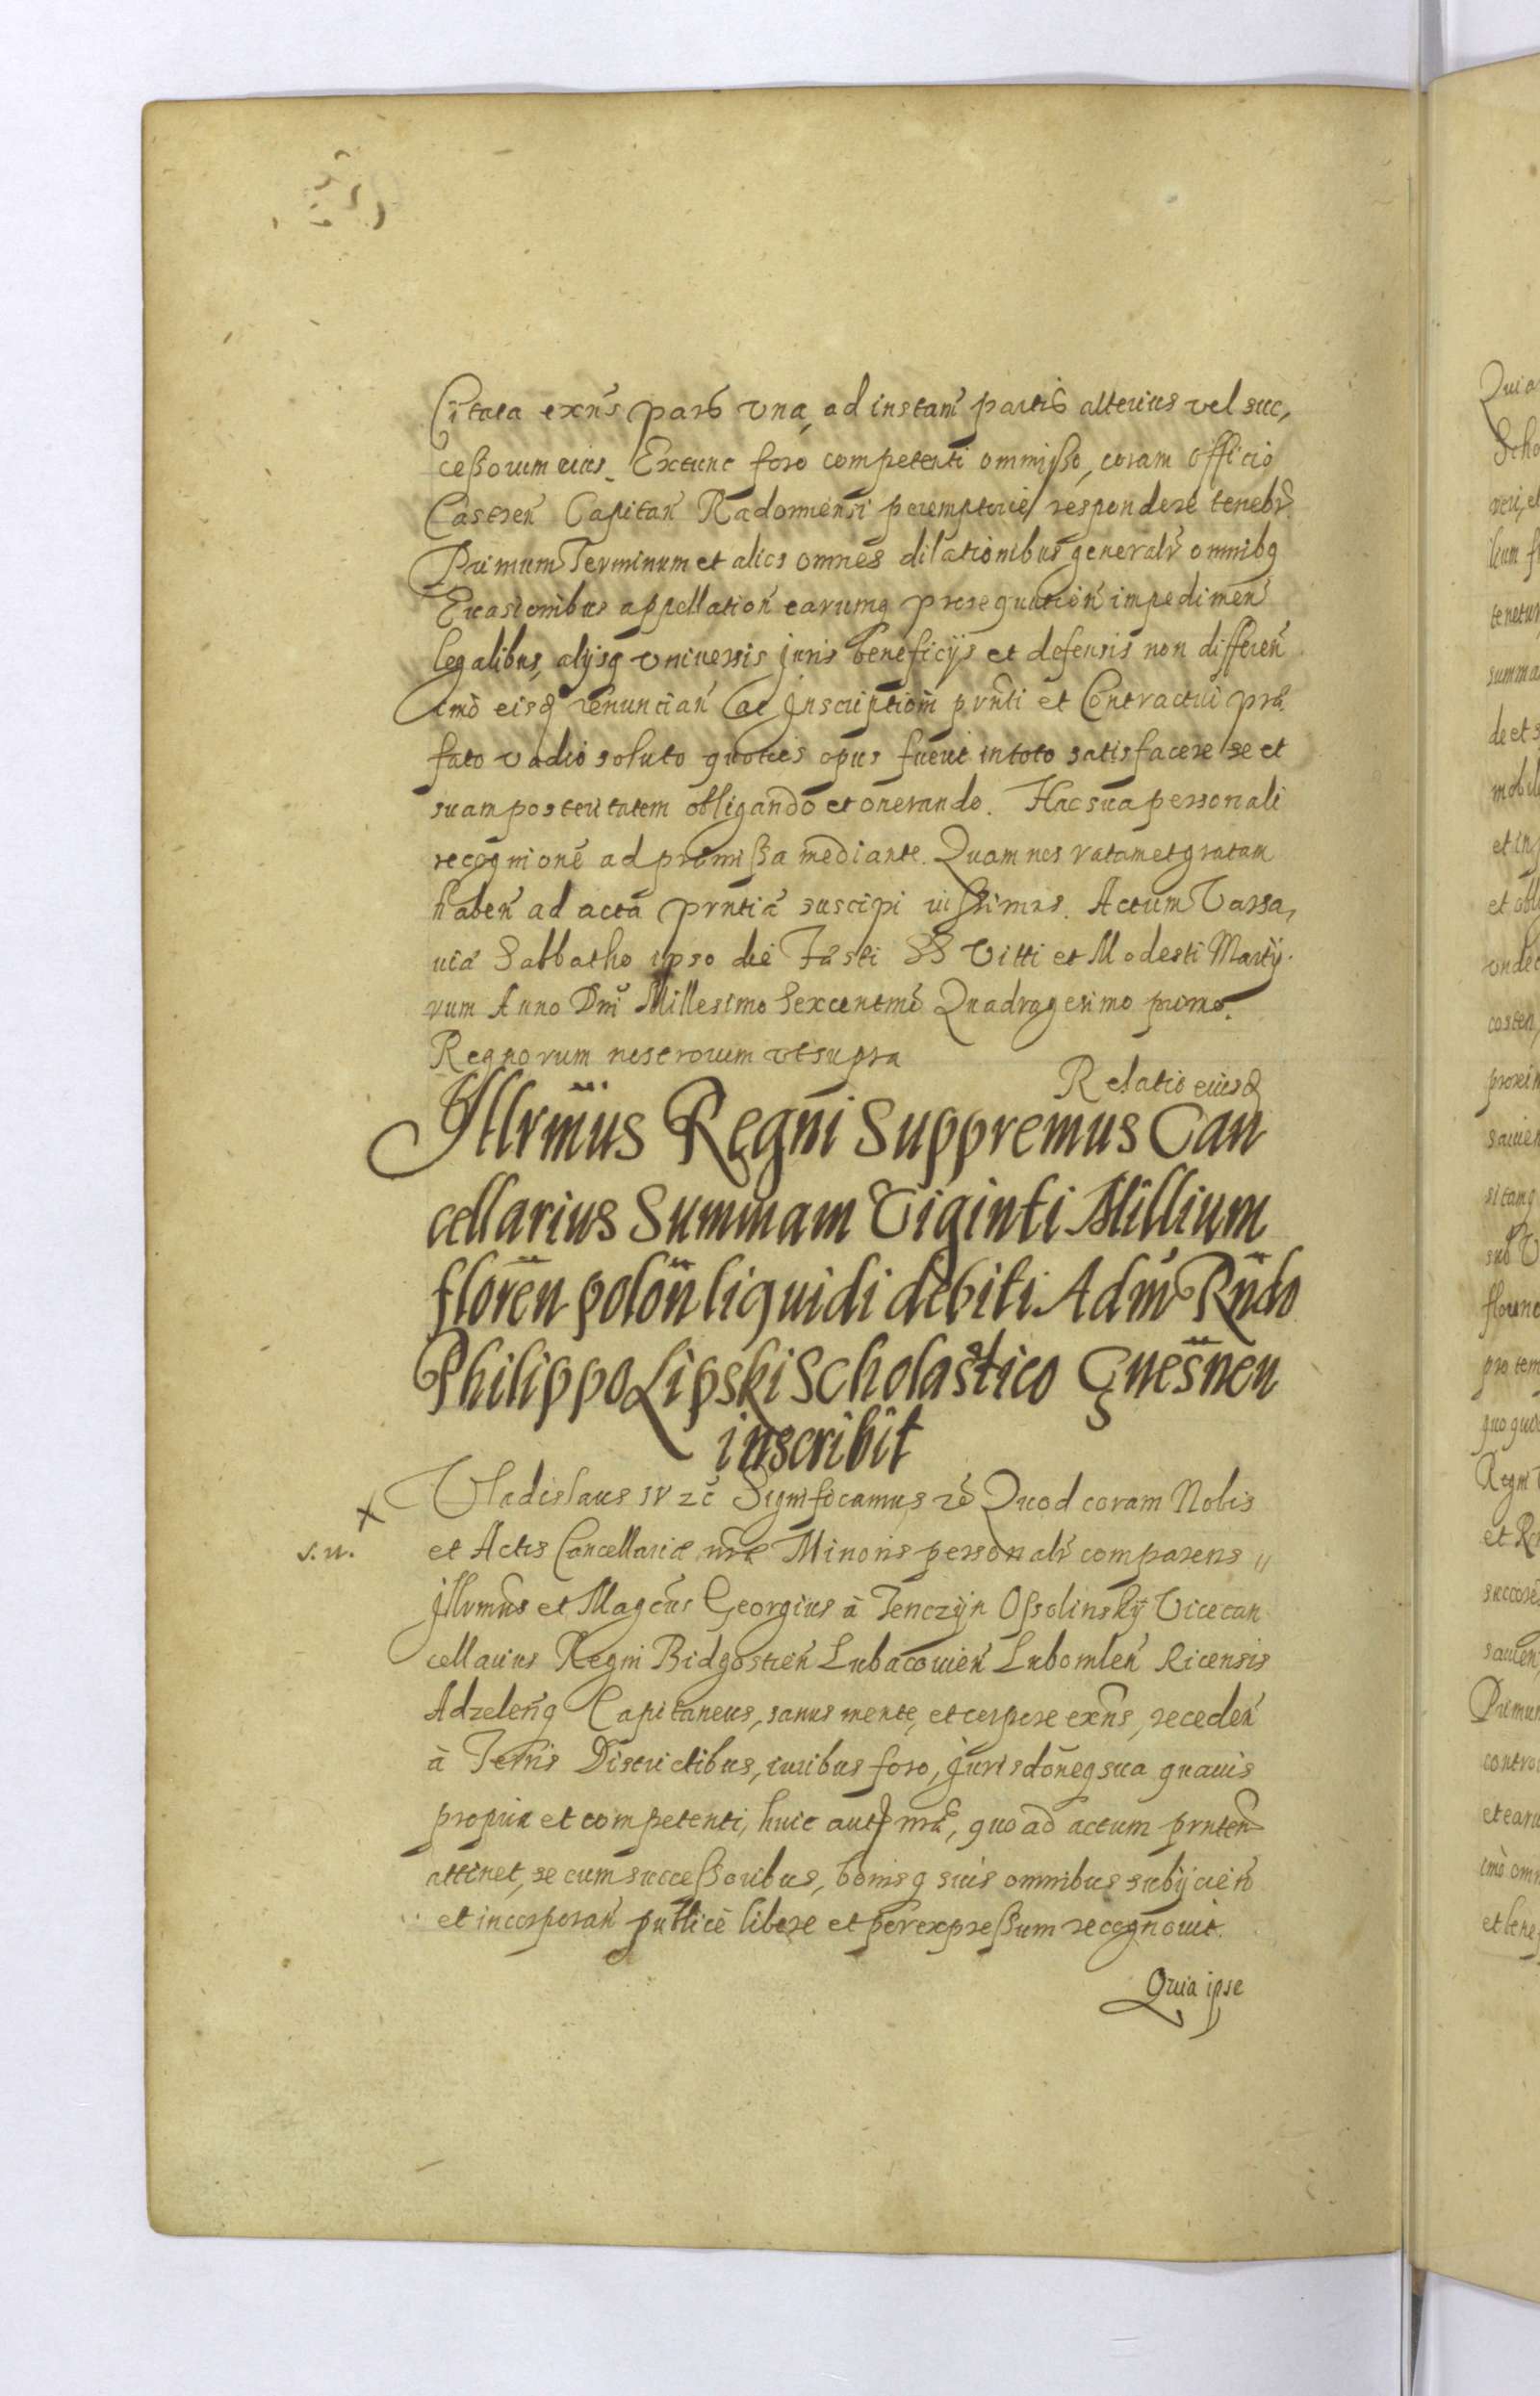 Citata exñs pars vna, ad instañ partis alterius vel suc,
ceßorum eius. Extunc foro competenti ommißo, coram officio
Castreñ Capitañ Radomiensi peremptorie respondere tenebr̃
Primum Terminum et alios omnes dilationibus generalr̃ omnibq
Euasionibus appellationẽ earumq prosequutioñ impedimeñ
legalibus, alijsq vniuersis juris beneficijs et defensis non differeñ
imò eisq renunciañ ac Inscriptioñi prñti et Contractui præ
fato vadio soluto quoties opus fuerit in toto satisfacere se et
suam posteritatem obligando et onerando. Hac sua personali
recognione ad præmißa mediante. Quam nos ratam et gratam
habeñ ad acta prñtia suscipi iußimus. Actum Varsa,
uiæ Sabbatho ipso die Festi SS Vitti et Modesti Martÿ.
rum Anno Dñi Millesimo Sexcentmõ Quadragesimo primo.
Regnorum nostrorum vt supra
Relatio eiusq
Illrm̃us Regni Suppremus Can
cellarius Summam Viginti Millium
floreñ poloñ liquidi debiti Adm̃ Rñdo
Philippo Lipski Scholastico Gnesneñ
inscribit
Vladislaus IV zc̃ Significamus zc̃ Quod coram Nobis
s. n.
et Actis Cancellariæ nr̃æ Minoris personalr̃ comparens
Jllrmũs et Magcũs Georgius à Tenczÿn Oßolinskÿ Vicecan
cellarius Regni Bidgostieñ Lubacouieñ Lubomleñ Ricensis
Adzeleñq Capitaneus, sanus mente, et corpore exñs, recedeñ
à Terris Districtibus, iuribus foro, jurisdoñeq sua quauis
propria et competenti, huic autẽ nr̃æ, quo ad actum prñtem
attinet, se cum succeßoribus, bonisq suis omnibus subijcieñ
et incorporañ publicè libere et per expreßum recognouit.
Quia ipse